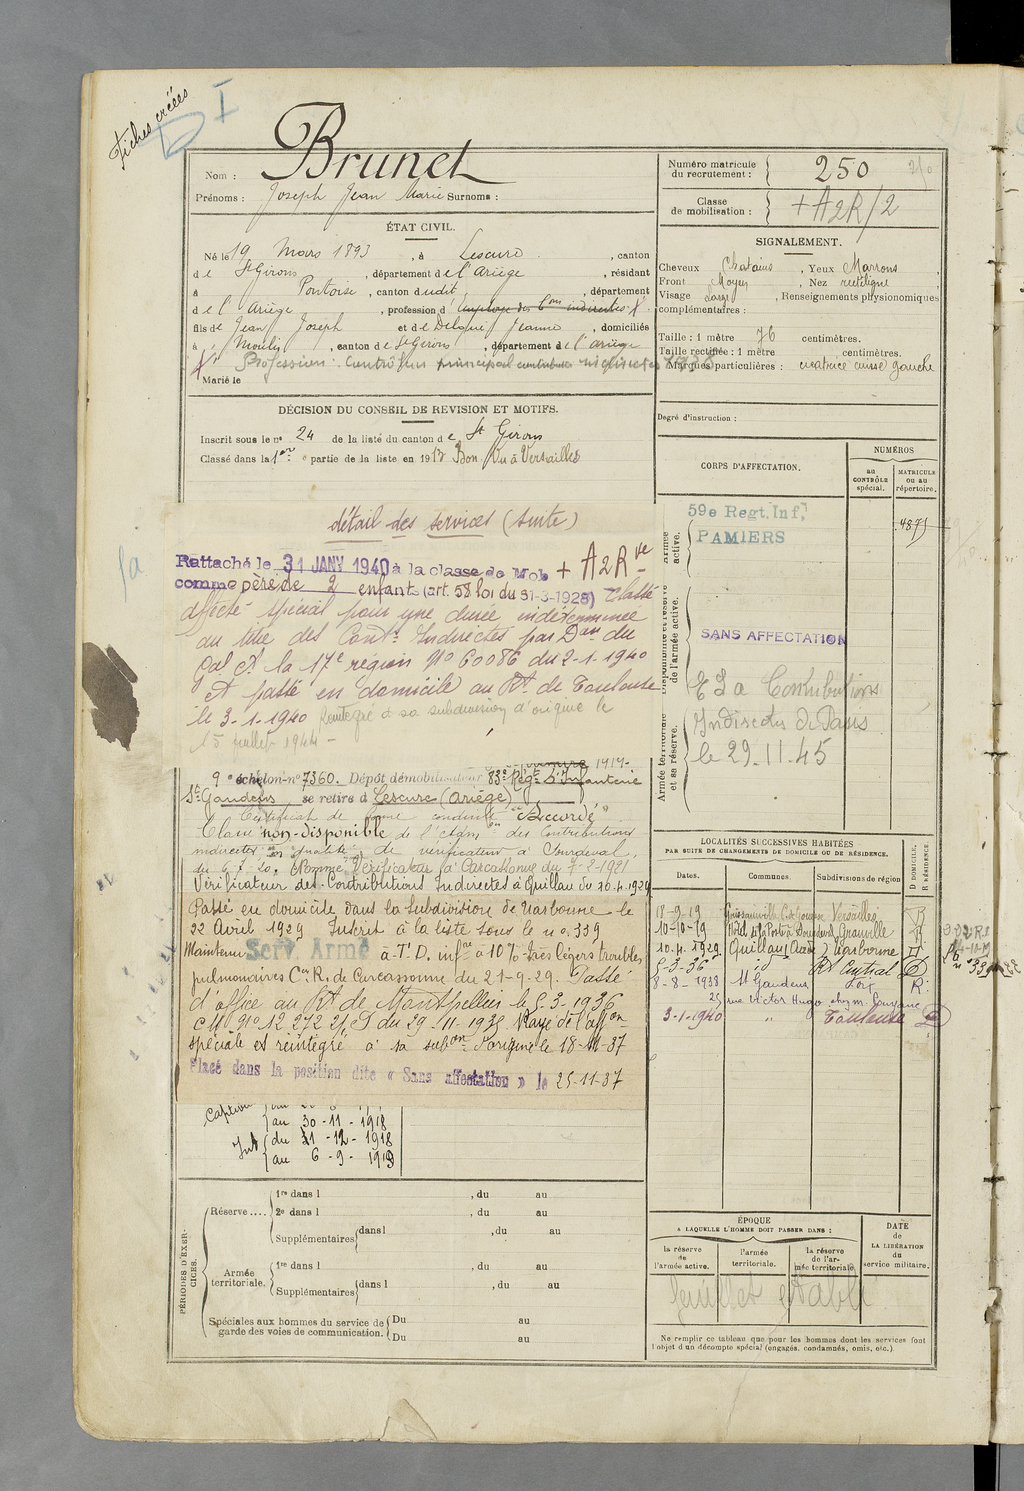 Fiches créées
I
Nom : Brunet
Prénoms : Joseph Jean Marie Surnoms :
Numéro matricule du recrutement : 250
Classe de mobilisation : + A2R/2
ÉTAT CIVIL.
Né le 19 Mars 1893, à Lescure, canton
de St Girons, département de l'Ariège, résidant
à Pontoise, canton dudit, département
de l'Ariège, profession d'employé des Cons indirectes
fils de Jean Joseph et de Jeanne, domiciliés
à Moulis, canton de St Girons, département de l'Ariège
Profession : Contrôleur principal contributions indirectes 1938
Marié le
SIGNALEMENT.
Cheveux Chatains, Yeux Marrons
Front Moyen, Nez rectiligne
Visage Large, Renseignements physionomiques
complémentaires :
Taille : 1 mètre 76 centimètres.
Taille rectifiée : 1 mètre centimètres.
Marques particulières : cicatrice cuisse gauche
Degré d'instruction :
DÉCISION DU CONSEIL DE REVISION ET MOTIFS.
Inscrit sous le no 24 de la liste du canton de St Girons
Classé dans la 1ere partie de la liste en 1913 Bon. Vu à Versailles
CORPS D'AFFECTATION.
NUMÉROS
au CONTRÔLE spécial.
MATRICULE ou au répertoire.
Armée active.
59e Regt. Inf,
PAMIERS
4875
Disponibilité et réserve de l'armée active.
SANS AFFECTATION
Armée territoriale et sa réserve.
Contributions
Indirectes de Paris
le 29.11.45
détail des services (suite)
Rattaché le 31 JANV 1940 à la classe de Mob + A2R
comme père de 2 enfants (art. 58 loi du 31-3-1928) Classé
affecté spécial pour une durée indéterminée
au titre des Cont. Indirectes par Don du
Gal Ct la 17e région No 60086 du 2-1-1940
et passé en domicile au Rt de Toulouse
le 3-1-1940 Réintégré à sa subdivision d'origine le
15 juillet 1944 -
9e échelon no 7360. Dépôt démobilisateur 83e Régt d'Infanterie
St Gaudens se retire à Lescure (Ariège)
Certificat de bonne conduite "Accordé"
Classé non-disponible de l'Adm. des Contributions
indirectes en qualité de vérificateur à Sourdeval,
du 6.7.20. Nommé Vérificateur à Carcassonne du 7-2-1921
Vérificateur des Contributions Indirectes à Quillan du 20.4.1929
Passé en domicile dans la subdivision de Narbonne le
22 Avril 1929 Inscrit à la liste sous le no 339
Maintenu Serv. Armé à T.D. inf. à 10% très légers troubles
pulmonaires Con R. de Carcassonne du 21-9-29. Passé
d'office au Rt de Montpellier le 5-3-1936
CM No 12 272 du 29-11-1935 Rayé de l'affon
spéciale et réintégré à sa subon d'origine le 18-11-37
Placé dans la position dite « Sans affectation » le 25-11-37
au 30-11-1918
Int du 1-12-1918
au 6-9-1919
LOCALITÉS SUCCESSIVES HABITÉES
PAR SUITE DE CHANGEMENTS DE DOMICILE OU DE RÉSIDENCE.
Dates. Communes. Subdivisions de région D DOMICILE. R RÉSIDENCE.
18-9-19 Versailles R
10-10-19 Granville R
10.4.1929 Quillan (Aude) Narbonne D
5-3-36 id Rt Central D
8-8-1938 St Gaudens Foix R
25 rue Victor Hugo
3-1-1940 " Toulouse D
PÉRIODES D'EXERCICES.
Réserve.... 1re dans l , du au
2e dans l , du au
Supplémentaires dans l , du au
Armée territoriale. 1re dans l , du au
Supplémentaires dans l , du au
Spéciales aux hommes du service de garde des voies de communication. Du au
Du au
ÉPOQUE
A LAQUELLE L'HOMME DOIT PASSER DANS :
la réserve de l'armée active.
l'armée territoriale.
la réserve de l'armée territoriale.
DATE de LA LIBÉRATION du service militaire.
feuillet établi
Ne remplir ce tableau que pour les hommes dont les services font
l'objet d'un décompte spécial (engagés, condamnés, omis, etc.).